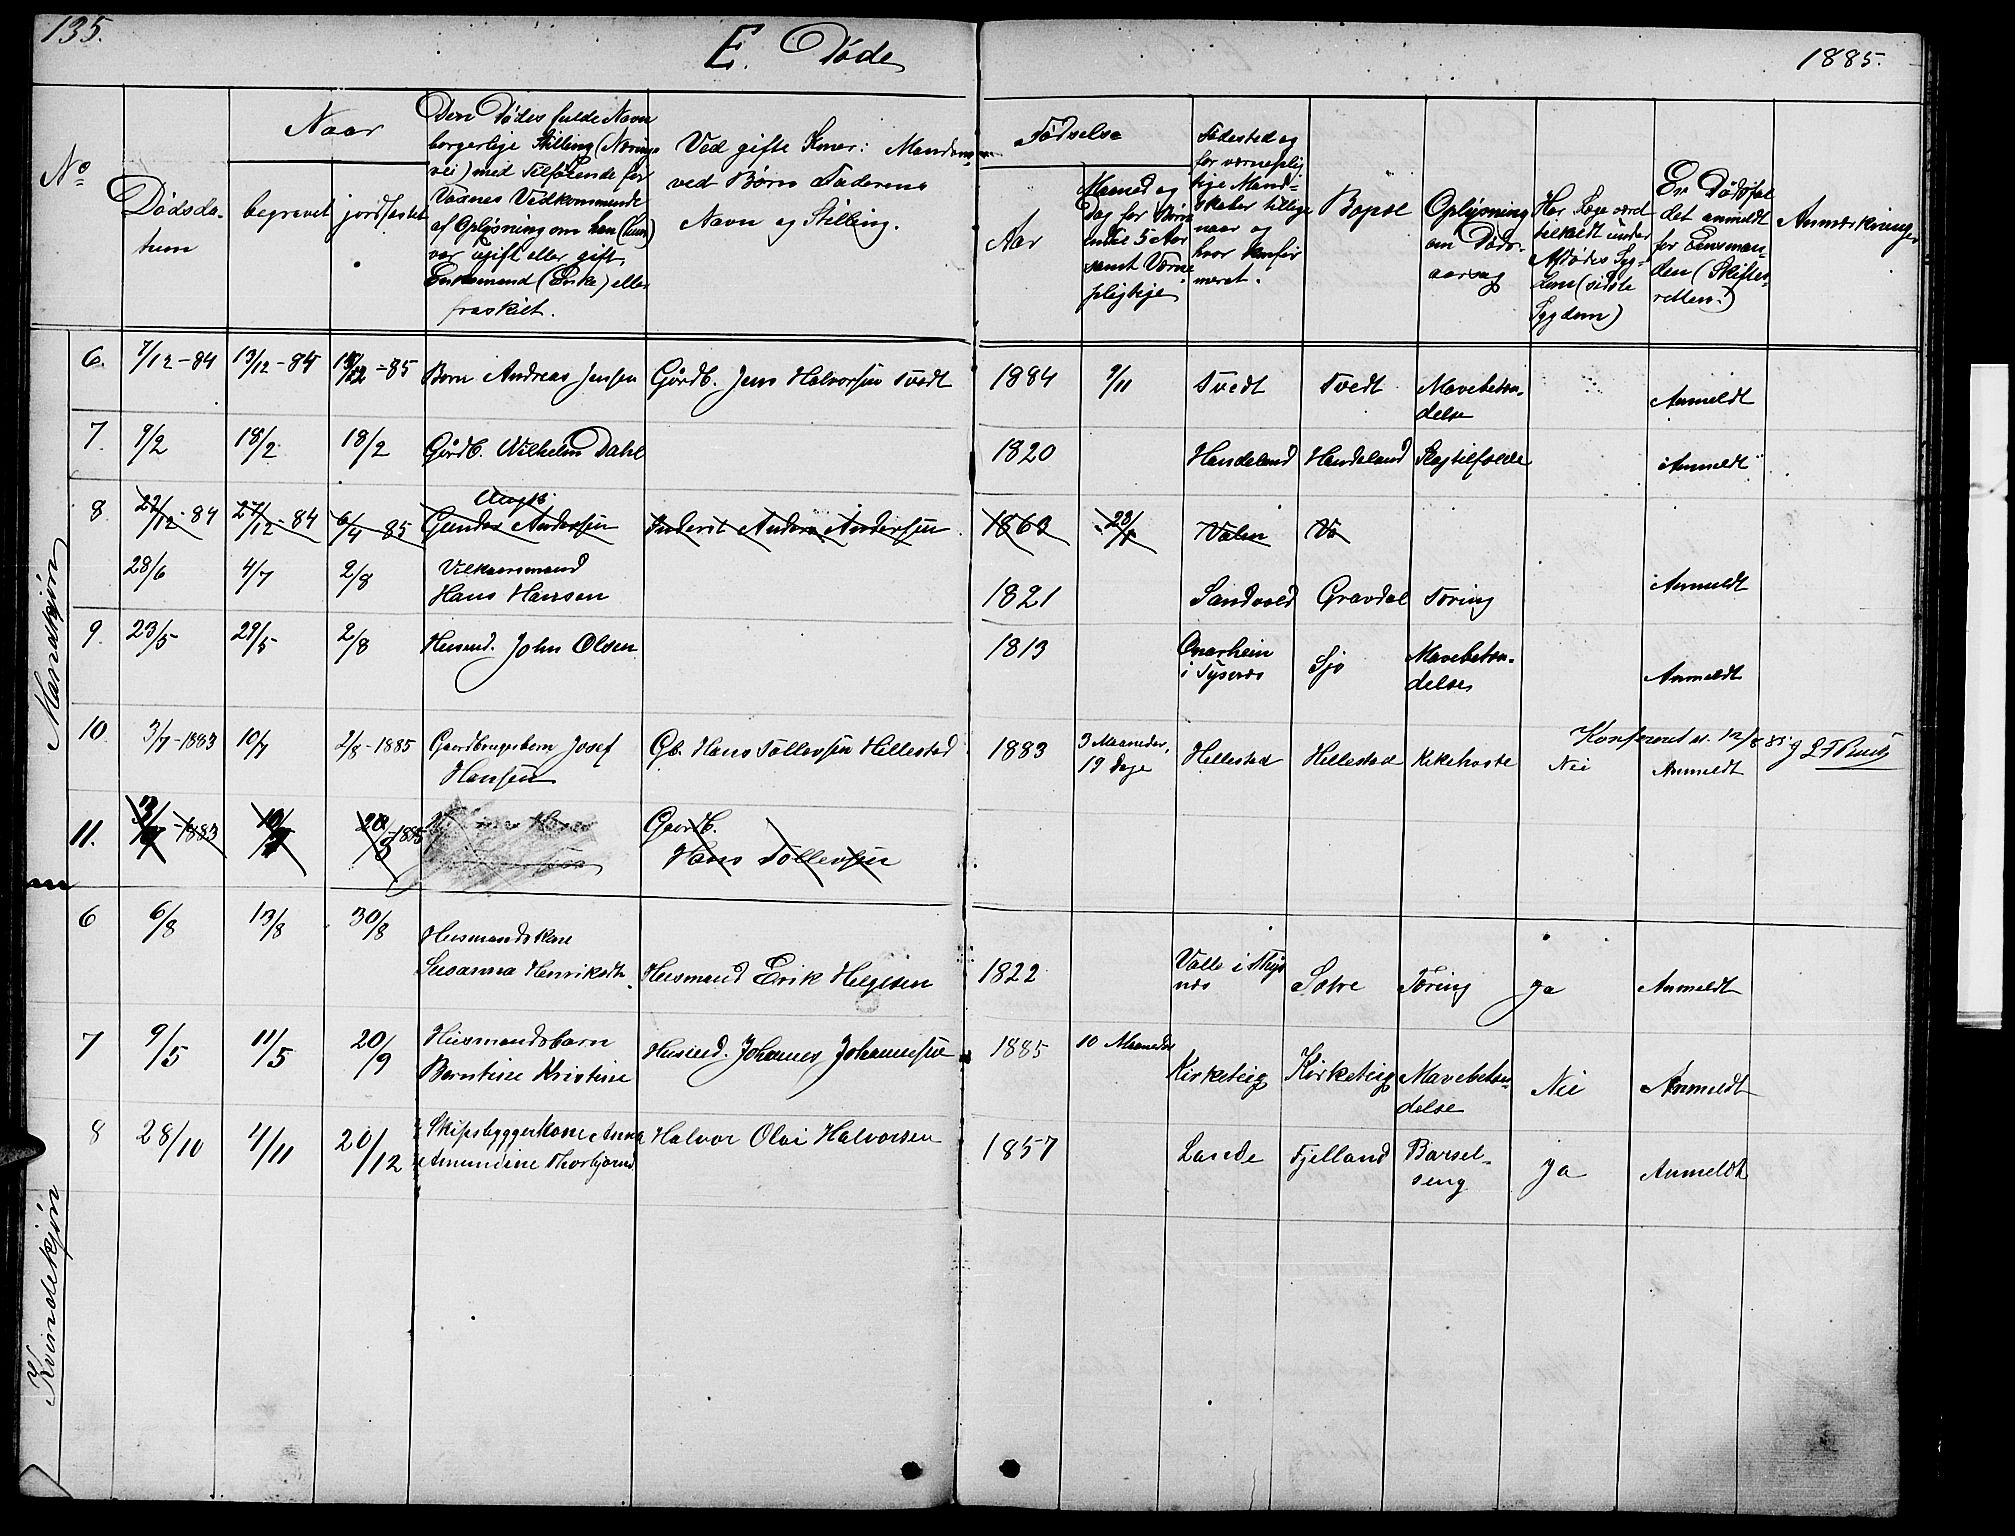 135.
E. Døde
1885.
No
Naar
Dødsda-
tum
begravet
jordfæstet
Den Dødes fulde Navn
borgerlige Stilling (Nærings
vei) med Tilføiende for
Voxnes Vedkommende
af Oplysning om han (hun)
var ugift eller gift,
Enkemand (Enke) eller
fraskilt.
Ved gifte Koner: Mandens
ved Børn Faderens
Navn og Stilling.
Fødselse
Aar
Maaned og
Dag for Børn
indtil 5 Aar
samt Værne-
pligtige
Fødested og
for værneplig
tige Mand-
skaber tillige
naar og
hvor konfir
meret.
Bopæl
Oplysning
om Døds-
aarsag
Har Læge været
tilkaldt under
Afdødes Syg-
dom (sidste
Sygdom)
Er Dødsfal
det anmeldt
for Lensman-
den (Skifte-
retten.)
Anmærkninger
Mandkjøn
6. 7/12-84 13/12-84 -85 Barn Andreas Jensen Gårdb. Jens Halvorsen Tvedt 1884 9/11 Tvedt Tvedt Mavebetæn-
delse Anmeldt
7. 9/2 18/2 18/2 Gårdb. Wilhelm Dahl 1820 Handeland Handeland Slagtilfælde Anmeldt
8. 22/12-84 27/12-84 6/4 85 Ungk.
Gunder Andersen Inderst Anders Andersen 1863 23/ Valen Va
28/6 4/7 2/8 Vilkaarsmand
Hans Hansen 1821 Sandvold Gravdal Tæring Anmeldt
9. 23/5 29/5 2/8 Husmd. John Olsen 1813 Onarhein
i Tysnes Sjo Mavebetæn-
delse Anmeldt
10. 3/7-1883 10/7 2/8-1885 Gaardbrugerbarn Josef
Hansen Gb. Hans Tollevsen Hillestad 1883 3 Maaneder,
19 Dage Hillestad Hillestad Kikehoste Nei Anmeldt
Konfereret d. 12/8 85
11. -1883 -1885 Gaardb.
Hans Tollevsen
6 6/8 13/8 30/8 Husmandskone
Susanna Henriksdtr. Husmand Erik Helgesen 1822 Valle i Thys
nes Sætre Tæring Ja Anmeldt
7 9/5 11/5 20/9 Husmandsbarn
Berntine Kristine Husmd. Johannes Johannesen 1885 10 Maaneder Kirketeig Kirketeig Mavebetæn-
delse Nei Anmeldt
8 28/10 4/11 20/12 Skipsbyggerkone Anna
Amundine Thorbjørnd Halvor Olai Halvorsen 1857 Lande Fjelland Barsel-
seng Ja Anmeldt
Kvindekjøn